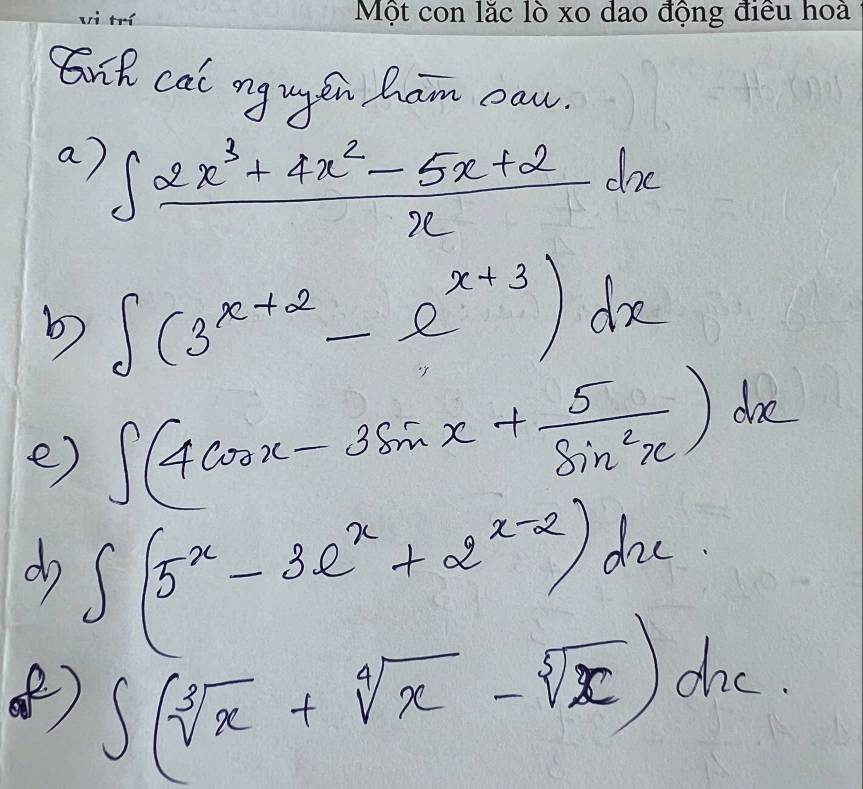 vị trí Một con lắc lò xo dao động điều hoà
Tính các nguyên hàm sau.
a) ∫ (2x³ + 4x² - 5x + 2)/x dx
b) ∫ (3^{x+2} - e^{x+3}) dx
e) ∫ (4 cosx - 3 sin x + 5/sin²x) dx
d) ∫ (5^x - 3e^x + 2^{x-2}) dx.
f) ∫ (∛x + ∜x - ⁵√x) dx.